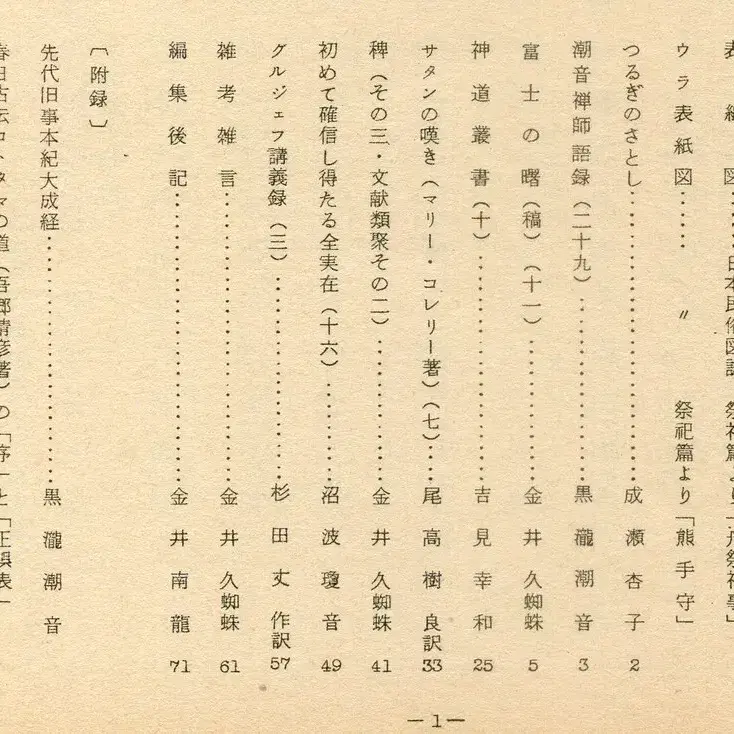 表 紙 図……日本民俗図誌 祭祀篇より「丹祭神事」
ウラ表紙図…… 〃 祭祀篇より「熊手守」
つるぎのさとし………………成瀬杏子 2
潮音禅師語録(二十九)………………黒瀧潮音 3
富士の曙(稿)(十一)………………金井久蜘蛛 5
神道叢書(十)………………吉見幸和 25
サタンの嘆き(マリー・コレリー著)(七)……尾高樹良訳 33
稗(その三・文献類聚その二)………………金井久蜘蛛 41
初めて確信し得たる全実在(十六)………………沼波瓊音 49
グルジェフ講義録(三)………………杉田丈作訳 57
雑考雑言………………金井久蜘蛛 61
編集後記………………金井南龍 71
〔附録〕
先代旧事本紀大成経………………黒瀧潮音
春日古伝コトタマの道(吾郷清彦著)の「序」と「正誤表」
—1—